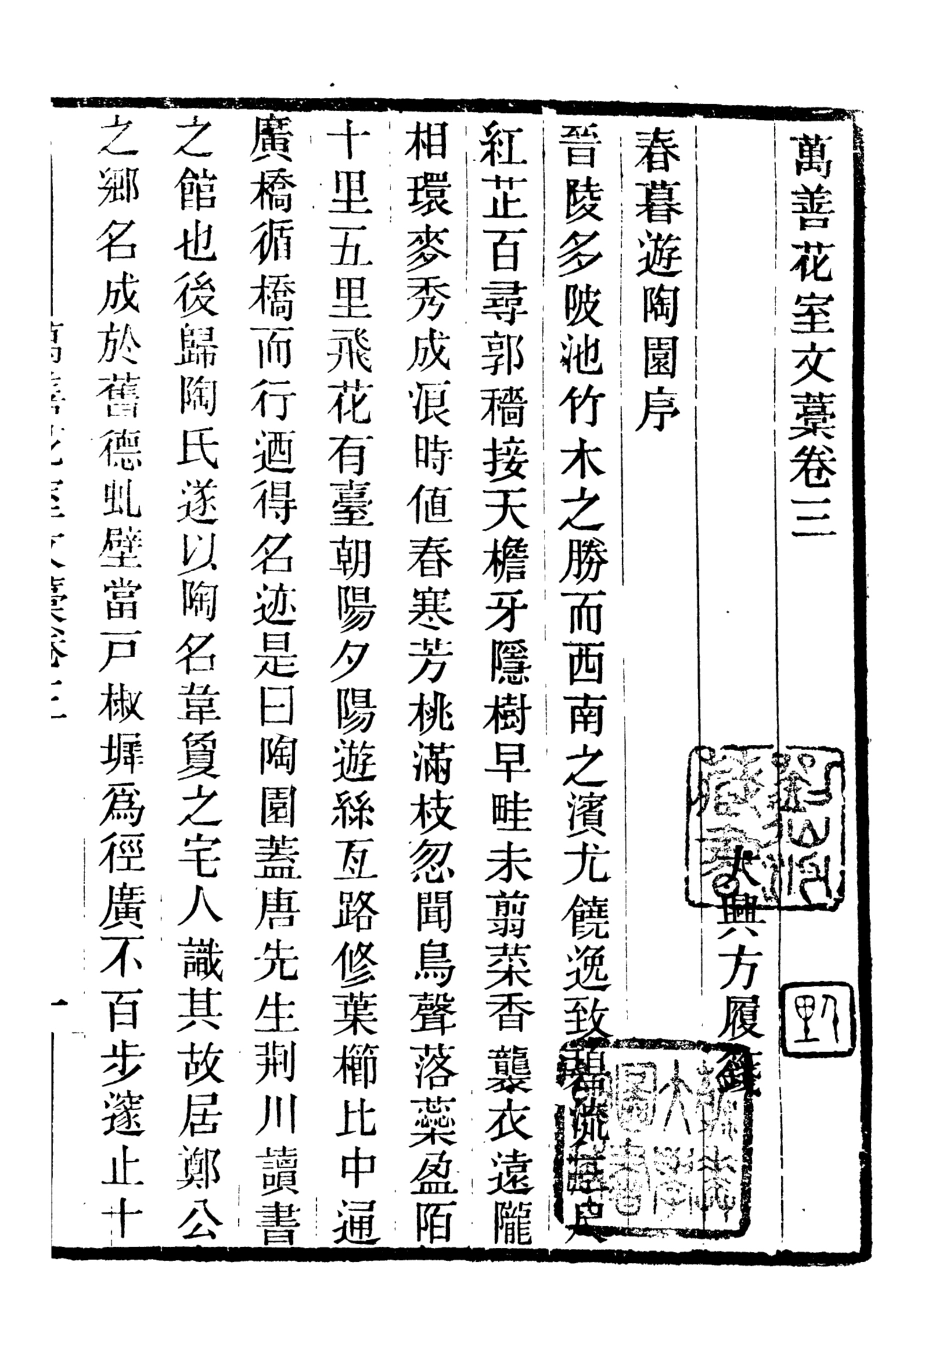 萬善花室文藳卷三
大興方履籛
春暮遊陶園序
晉陵多陂池竹木之勝而西南之濱尤饒逸致碧流
紅芷百尋郭穡接天檐牙隱樹早畦未翦菜香襲衣遠隴
相環麥秀成浪時値春寒芳桃滿枝忽聞鳥聲落蘂盈陌
十里五里飛花有臺朝陽夕陽遊絲亙路修葉櫛比中通
廣橋循橋而行迺得名迹是曰陶園蓋唐先生荆川讀書
之館也後歸陶氏遂以陶名韋夐之宅人識其故居鄭公
之鄉名成於舊德虬壁當戸椒墀爲徑廣不百步邃止十
萬善花室文藳卷三
一